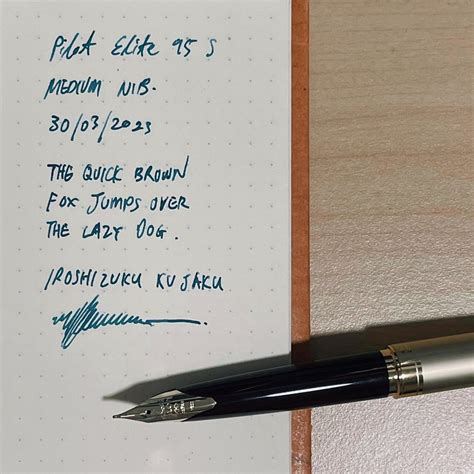 Pilot Elite 95 S
MEDIUM NIB.
30/03/2023
THE QUICK BROWN
FOX JUMPS OVER
THE LAZY DOG.
IROSHIZUKU KUJAKU